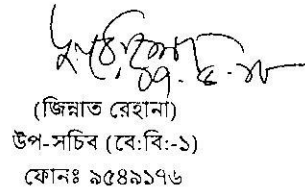 (জিন্নাত রেহানা)
উপ-সচিব (বে:বি:-১)
ফোনঃ ৯৫৪৯১৭৬